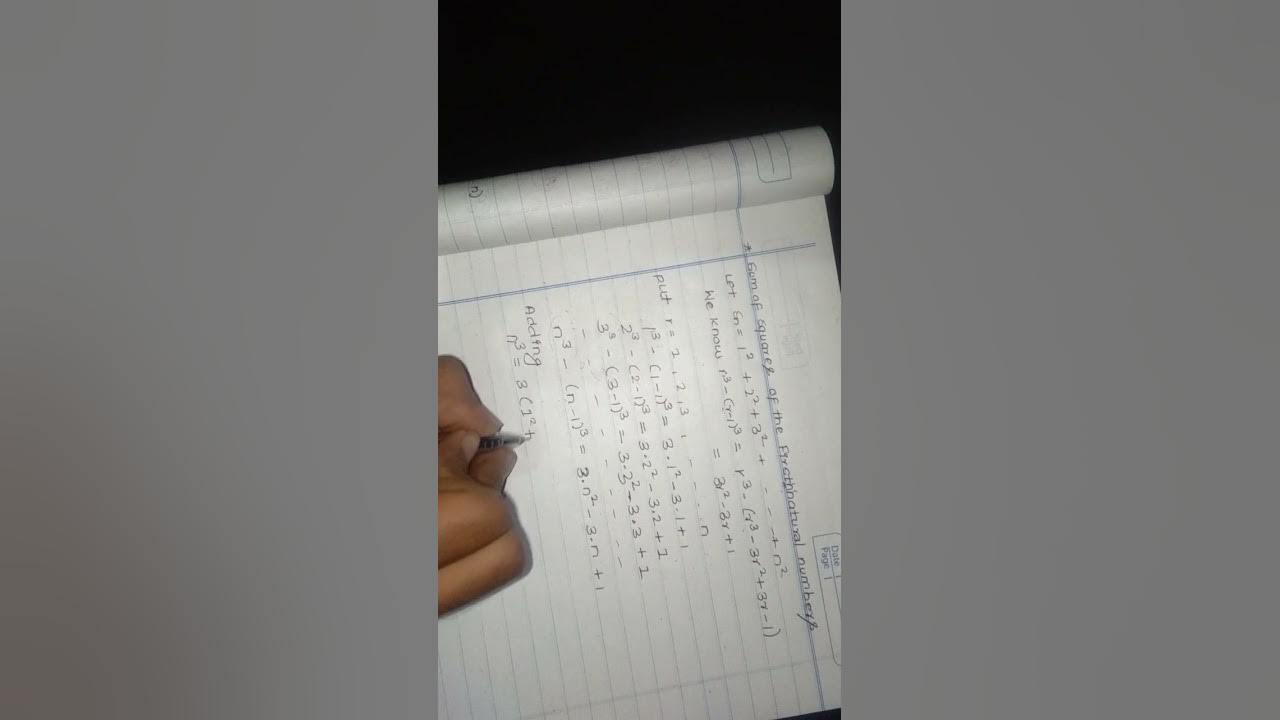 Date
Page 1
* Sum of squares of the first n natural numbers
Let Sn = 1² + 2² + 3² + - - - + n²
We know r³ - (r-1)³ = r³ - (r³ - 3r² + 3r - 1)
= 3r² - 3r + 1
put r = 1, 2, 3, - - - - n
1³ - (1-1)³ = 3·1² - 3·1 + 1
2³ - (2-1)³ = 3·2² - 3·2 + 1
3³ - (3-1)³ = 3·3² - 3·3 + 1
- - - - - - - -
n³ - (n-1)³ = 3·n² - 3·n + 1
Adding
n³ = 3 (1² +
n)